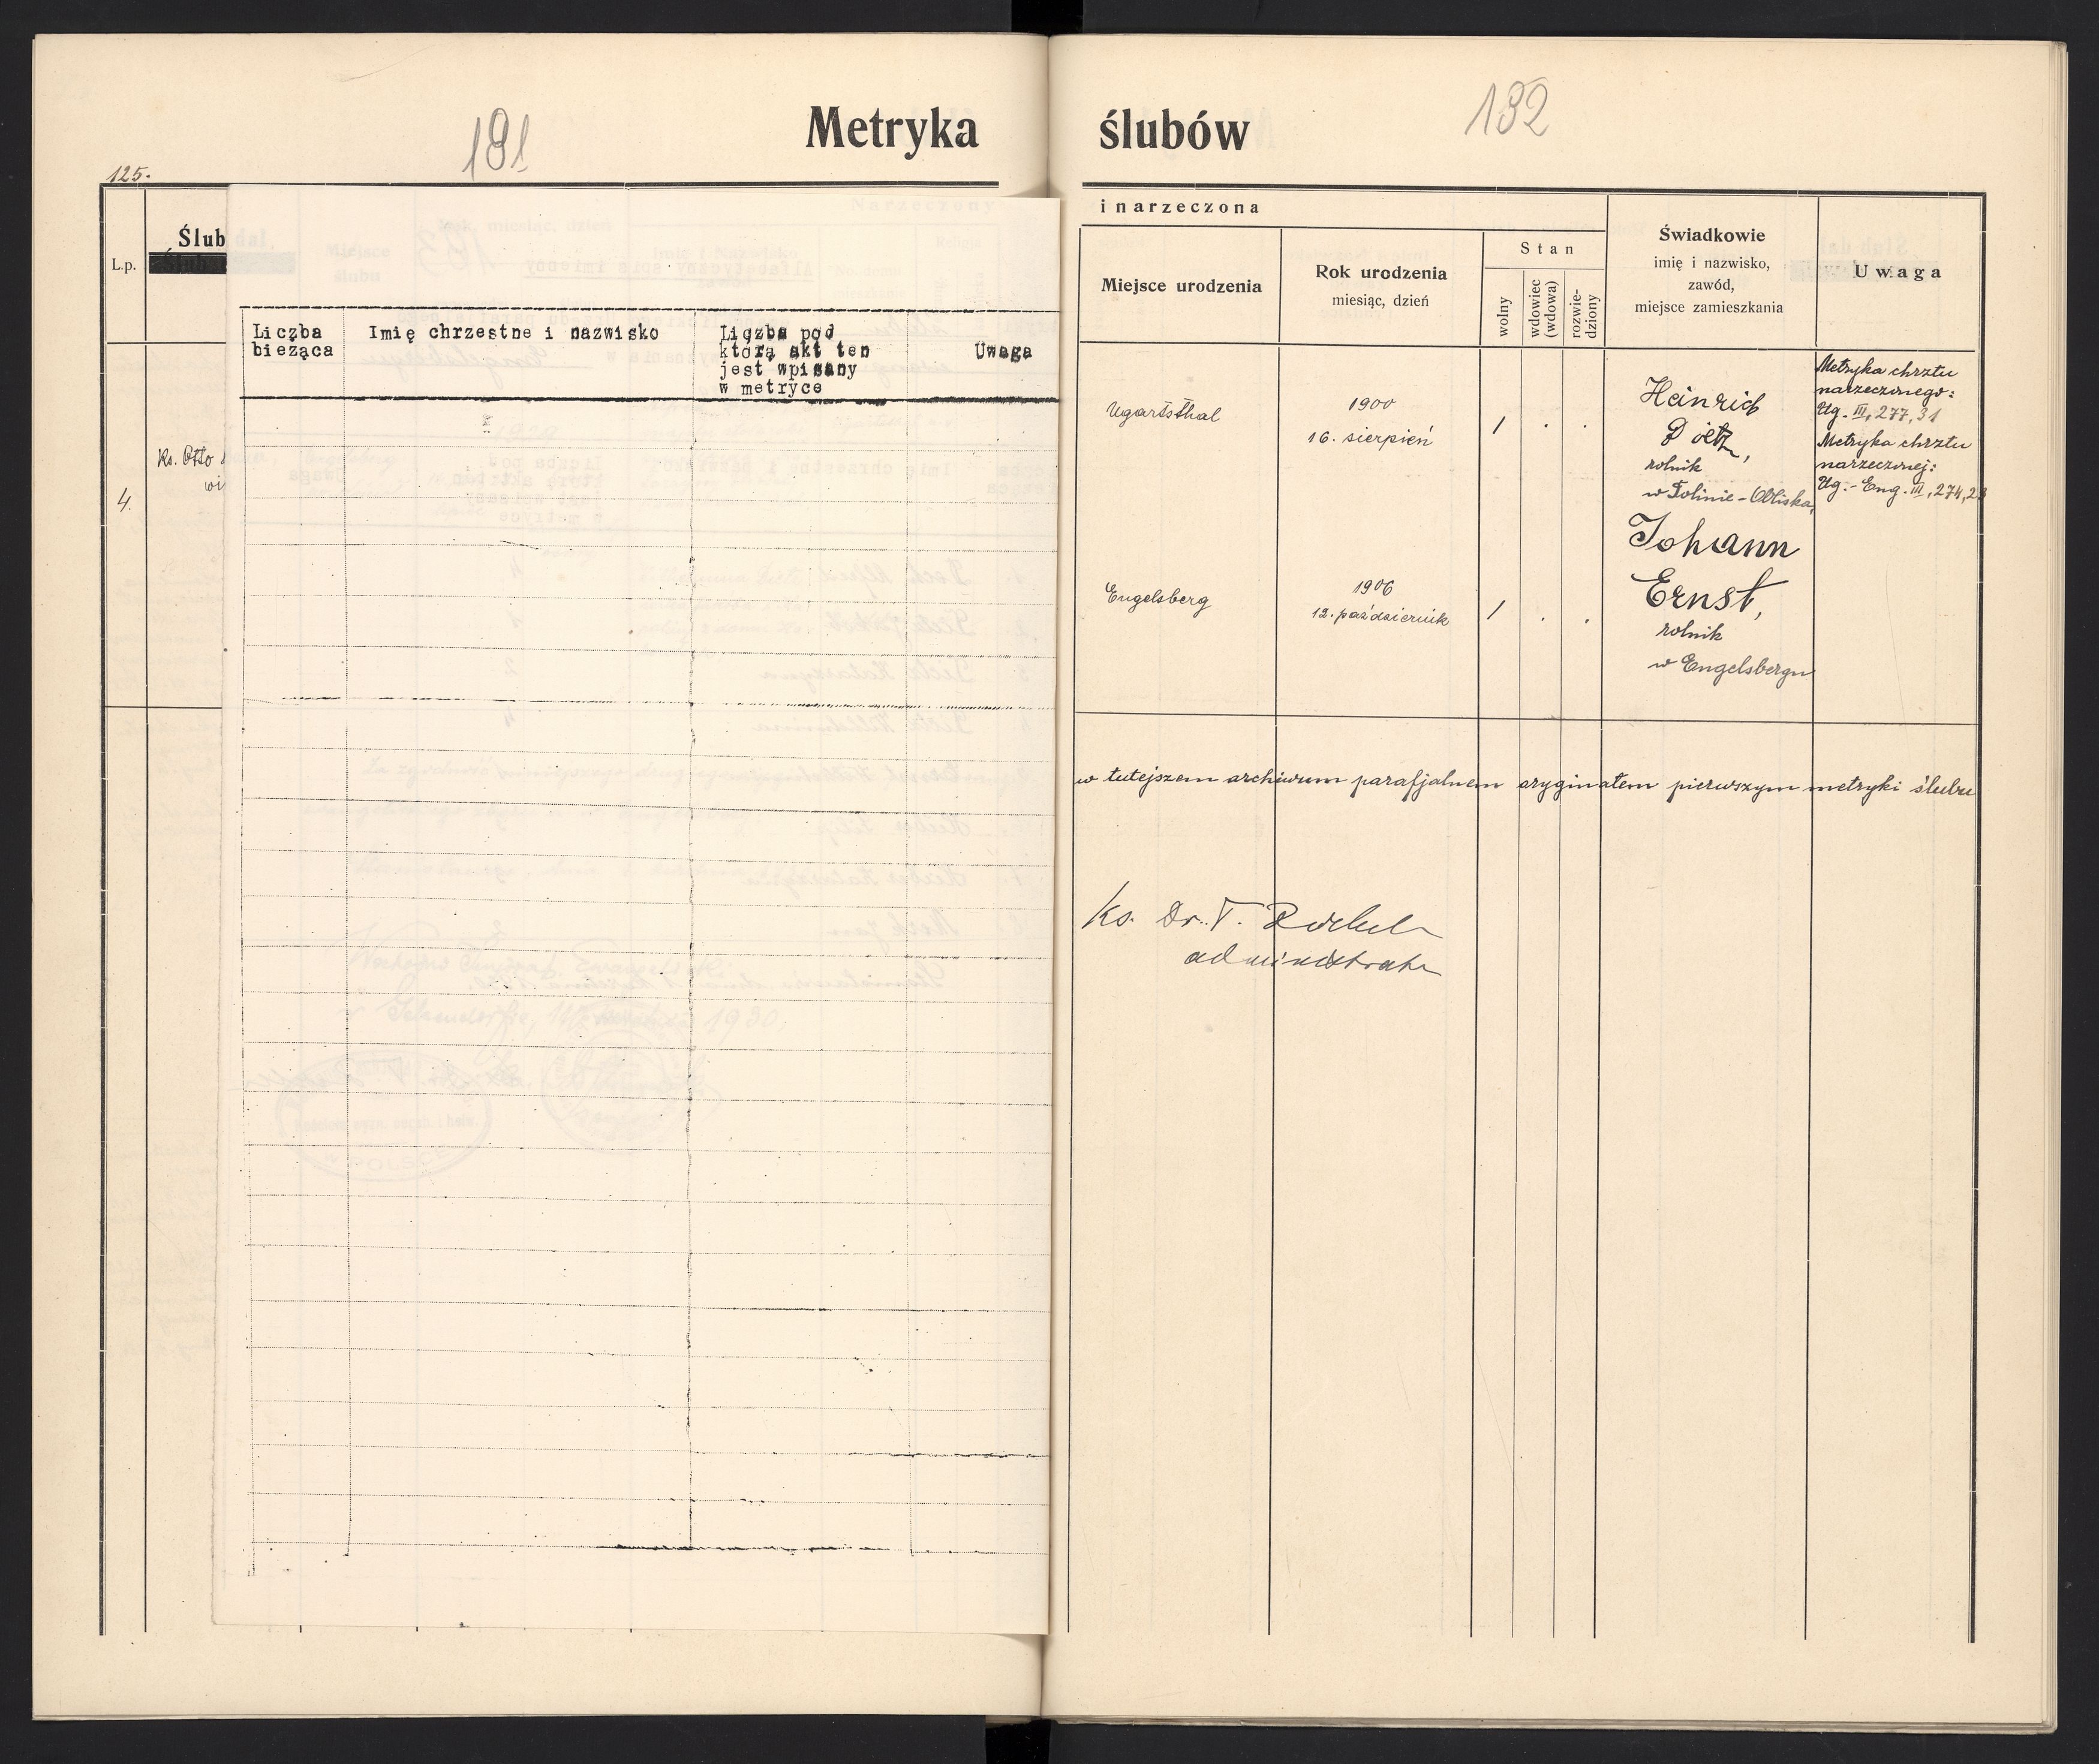 181
Metryka ślubów
132
125.
L.p.
Ślub
4.
Ks. Otto
wi
Liczba
bieżąca
Imię chrzestne i nazwisko
Liczba pod
którą akt ten
jest wpisany
w metryce
Uwaga
i narzeczona
Miejsce urodzenia
Rok urodzenia
miesiąc, dzień
Stan
wolny
wdowiec
(wdowa)
rozwie-
dziony
Świadkowie
imię i nazwisko,
zawód,
miejsce zamieszkania
Uwaga
Ugartsthal
1900
16. sierpień
/ . .
Heinrich
Dietz,
rolnik
w Dolinie-Obliska,
Metryka chrztu
narzeczonego:
Ug. III, 277, 31
Metryka chrztu
narzeczonej:
Ug.-Eng. III, 274, 23
Engelsberg
1906
12. październik
/ . .
Johann
Ernst,
rolnik
w Engelsbergu
w tutejszem archiwum parafjalnem oryginałem pierwszym metryki ślubu
Ks. Dr. T.
administrator